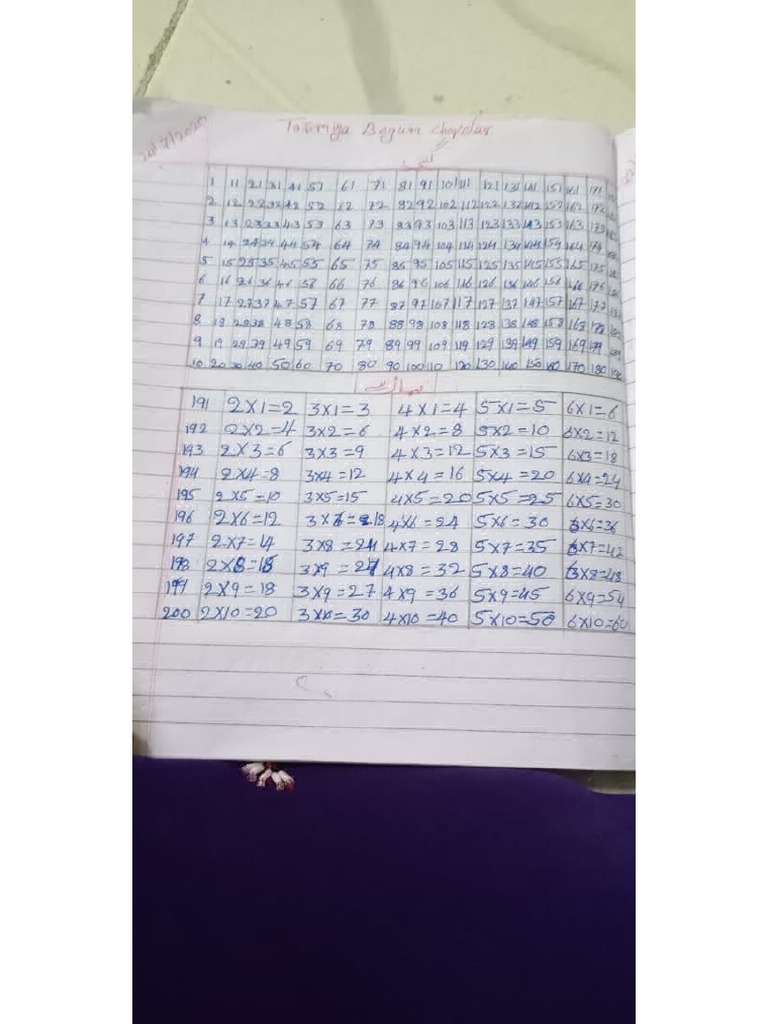 24/7/2020
Tasmiya Begum chopdar
1 11 21 31 41 51 61 71 81 91 101 111 121 131 141 151 161 171
2 12 22 32 42 52 62 72 82 92 102 112 122 132 142 152 162 172
3 13 23 33 43 53 63 73 83 93 103 113 123 133 143 153 163 173
4 14 24 34 44 54 64 74 84 94 104 114 124 134 144 154 164 174
5 15 25 35 45 55 65 75 85 95 105 115 125 135 145 155 165 175
6 16 26 36 46 56 66 76 86 96 106 116 126 136 146 156 166 176
7 17 27 37 47 57 67 77 87 97 107 117 127 137 147 157 167 177
8 18 28 38 48 58 68 78 88 98 108 118 128 138 148 158 168 178
9 19 29 39 49 59 69 79 89 99 109 119 129 139 149 159 169 179
10 20 30 40 50 60 70 80 90 100 110 120 130 140 150 160 170 180 190
191 2×1=2 3×1=3 4×1=4 5×1=5 6×1=6
192 2×2=4 3×2=6 4×2=8 5×2=10 6×2=12
193 2×3=6 3×3=9 4×3=12 5×3=15 6×3=18
194 2×4=8 3×4=12 4×4=16 5×4=20 6×4=24
195 2×5=10 3×5=15 4×5=20 5×5=25 6×5=30
196 2×6=12 3×6=18 4×6=24 5×6=30 6×6=36
197 2×7=14 3×8=24 4×7=28 5×7=35 6×7=42
198 2×8=16 3×9=27 4×8=32 5×8=40 6×8=48
199 2×9=18 3×9=27 4×9=36 5×9=45 6×9=54
200 2×10=20 3×10=30 4×10=40 5×10=50 6×10=60